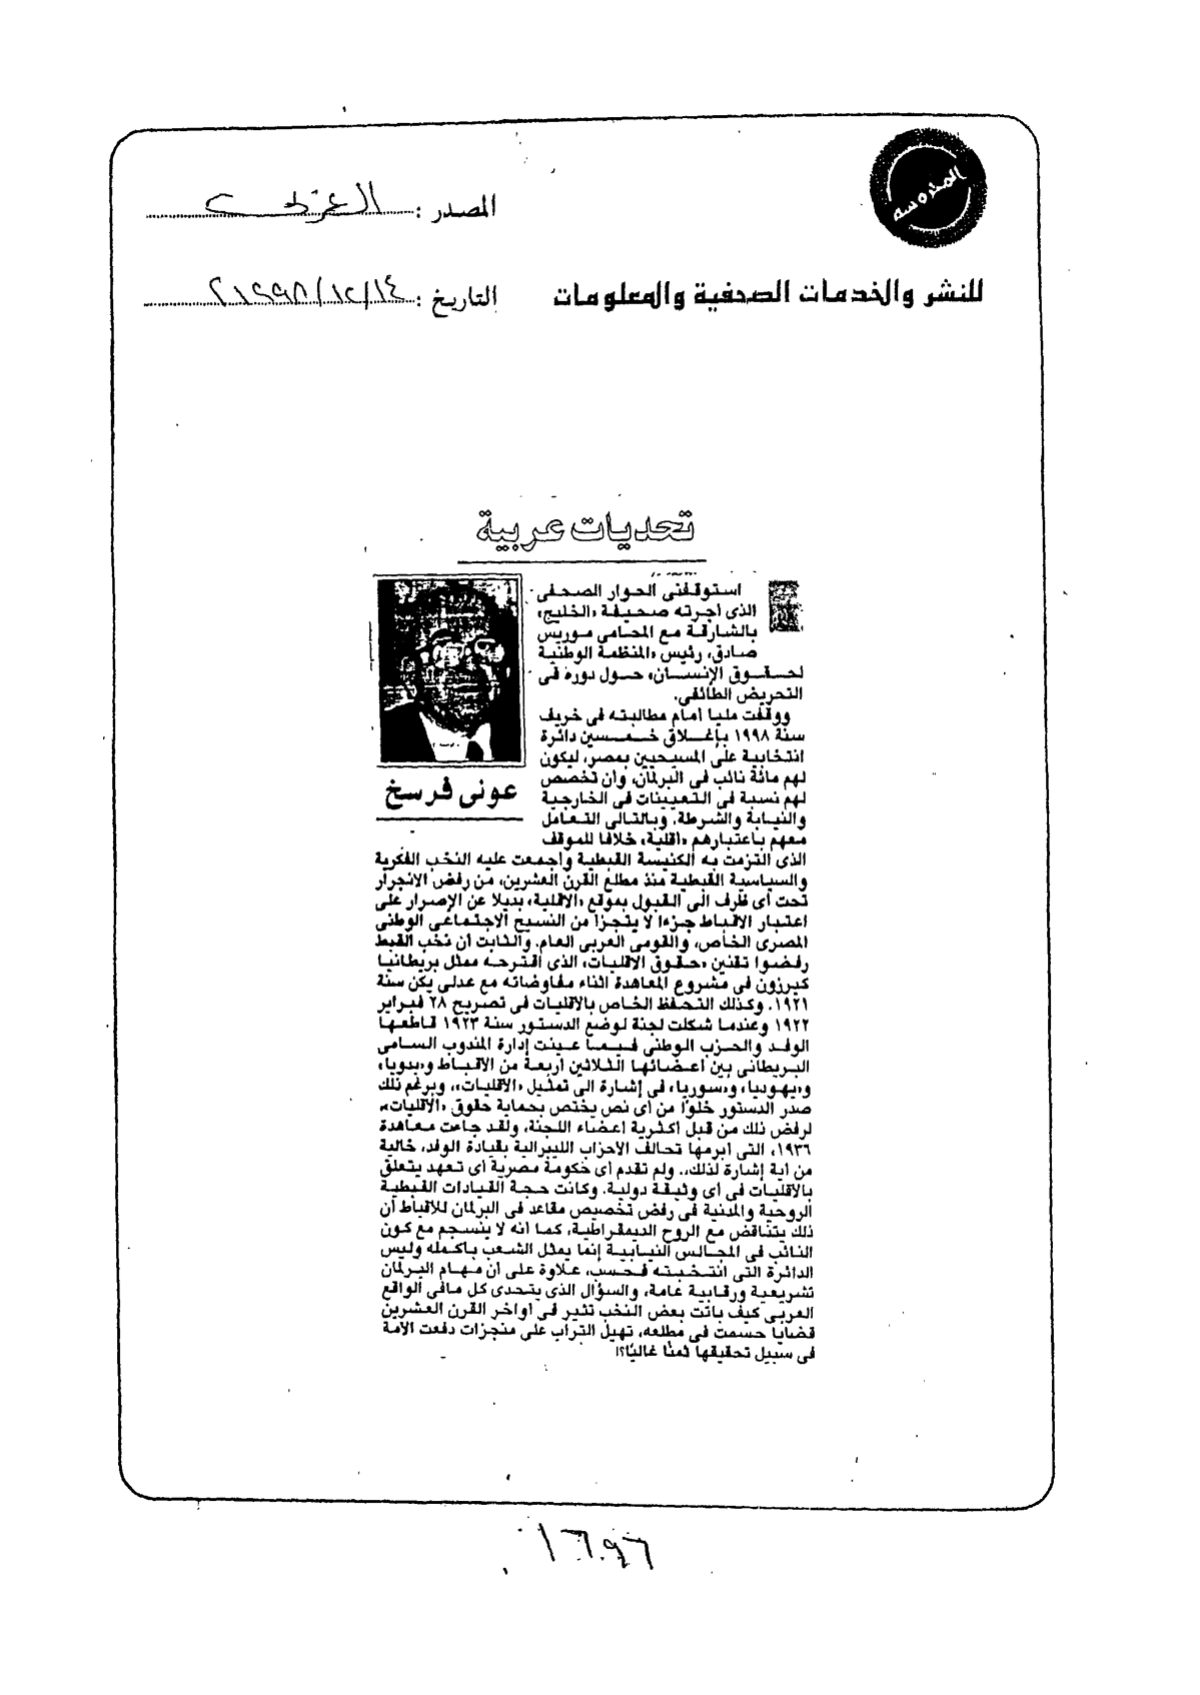 المحروسه
المصدر : العربي
للنشر والخدمات الصحفية والمعلومات
التاريخ : ١٤/١٢/١٩٩٨
تحديات عربية
عونى فرسخ
استوقفنى الحوار الصحفى
الذى اجرته صحيفة «الخليج»
بالشارقة مع المحامى موريس
صادق، رئيس «المنظمة الوطنية
لحقوق الإنسان» حول دوره فى
التحريض الطائفى.
ووقفت مليا أمام مطالبته فى خريف
سنة ١٩٩٨ بإغلاق خمسين دائرة
انتخابية على المسيحيين بمصر، ليكون
لهم مائة نائب فى البرلمان، وان تخصص
لهم نسبة فى التعيينات فى الخارجية
والنيابة والشرطة. وبالتالى التعامل
معهم باعتبارهم «اقلية» خلافا للموقف
الذى التزمت به الكنيسة القبطية وأجمعت عليه النخب الفكرية
والسياسية القبطية منذ مطلع القرن العشرين، من رفض الانجرار
تحت أى ظرف الى القبول بموقع «الاقلية» بديلا عن الإصرار على
اعتبار الاقباط جزءا لا يتجزأ من النسيج الاجتماعى الوطنى
المصرى الخاص، والقومى العربى العام. والثابت ان نخب القبط
رفضوا تقنين «حقوق الاقليات» الذى اقترحه ممثل بريطانيا
كيرزون فى مشروع المعاهدة اثناء مفاوضاته مع عدلى يكن سنة
١٩٢١. وكذلك التحفظ الخاص بالاقليات فى تصريح ٢٨ فبراير
١٩٢٢ وعندما شكلت لجنة لوضع الدستور سنة ١٩٢٣ قاطعها
الوفد والحزب الوطنى فيما عينت إدارة المندوب السامى
البريطانى بين اعضائها الثلاثين اربعة من الاقباط و«بدويا»
و«يهوديا» و«سوريا» فى إشارة الى تمثيل «الاقليات»، وبرغم ذلك
صدر الدستور خلوًا من أى نص يختص بحماية حقوق «الأقليات»
لرفض ذلك من قبل اكثرية اعضاء اللجنة، ولقد جاءت معاهدة
١٩٣٦، التى ابرمها تحالف الأحزاب الليبرالية بقيادة الوفد، خالية
من أية إشارة لذلك.. ولم تقدم أى حكومة مصرية أى تعهد يتعلق
بالاقليات فى أى وثيقة دولية. وكانت حجة القيادات القبطية
الروحية والمدنية فى رفض تخصيص مقاعد فى البرلمان للأقباط أن
ذلك يتناقض مع الروح الديمقراطية، كما أنه لا ينسجم مع كون
النائب فى المجالس النيابية إنما يمثل الشعب بأكمله وليس
الدائرة التى انتخبته فحسب، علاوة على أن مهام البرلمان
تشريعية ورقابية عامة، والسؤال الذى يتحدى كل مافى الواقع
العربى كيف باتت بعض النخب تثير فى أواخر القرن العشرين
قضايا حسمت فى مطلعه، تهيل التراب على منجزات دفعت الأمة
فى سبيل تحقيقها ثمنًا غاليًا؟!